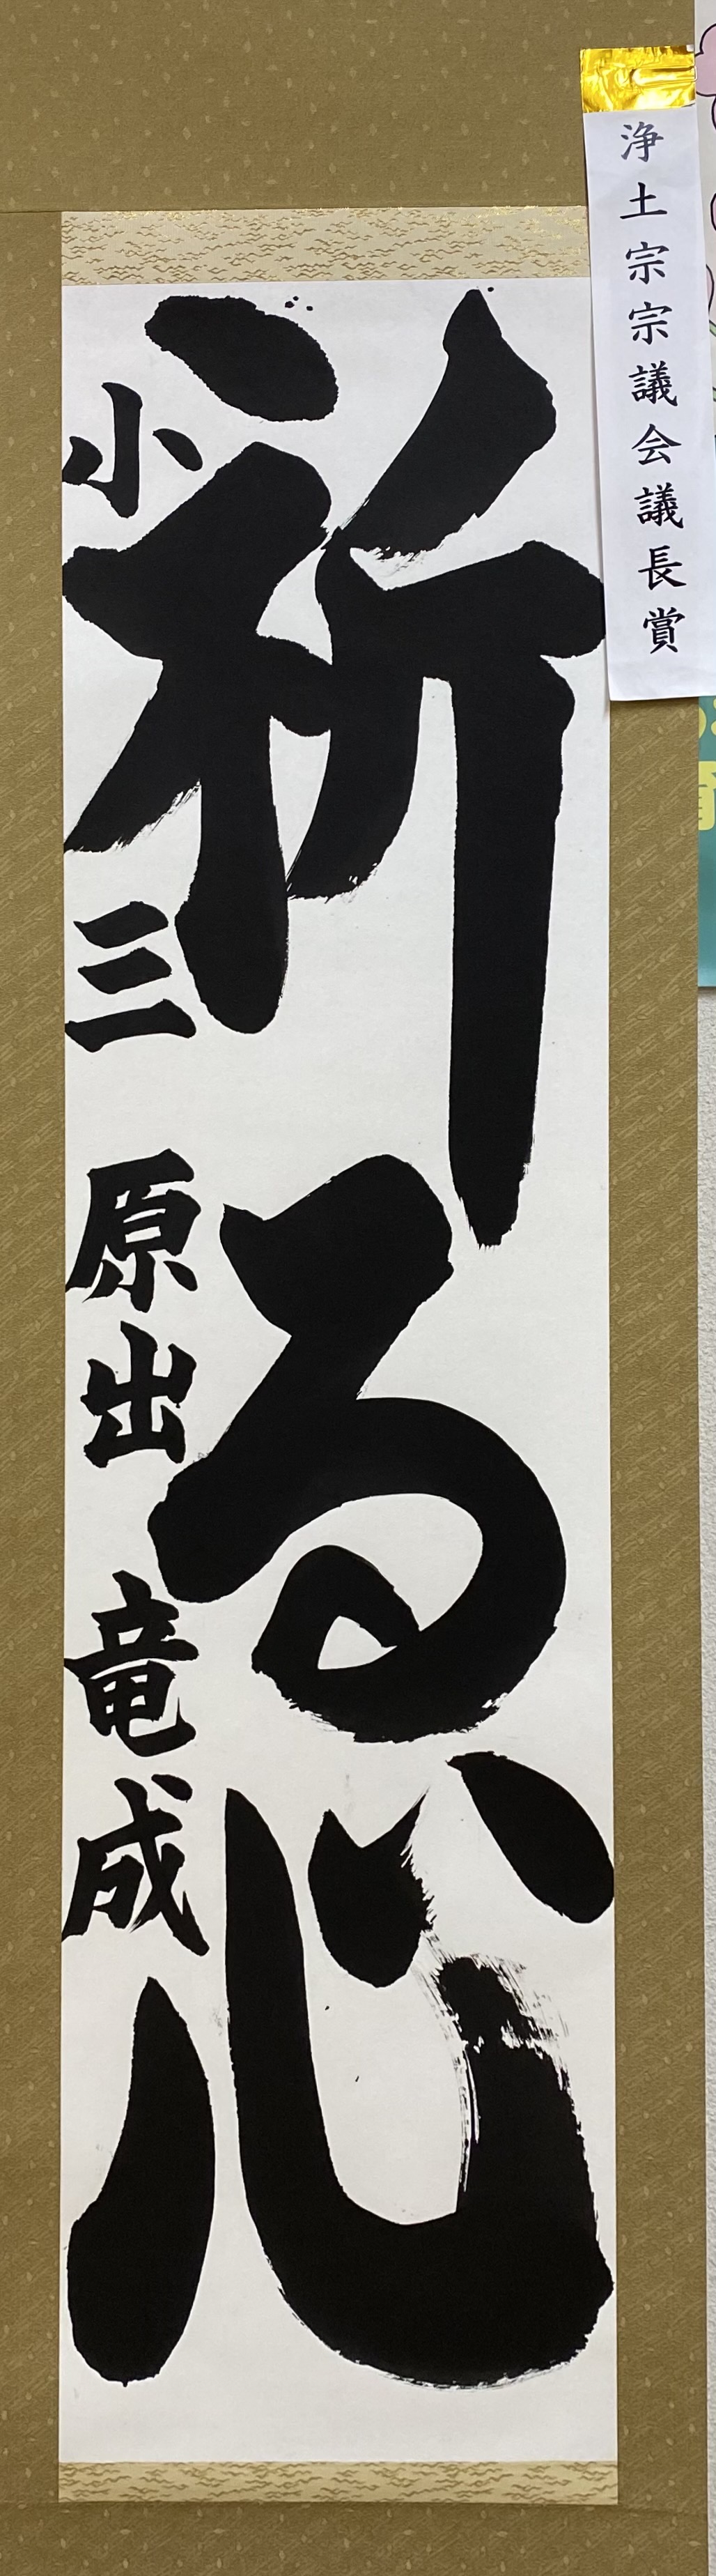 浄土宗宗議会議長賞
祈る心
小三 原出 竜成